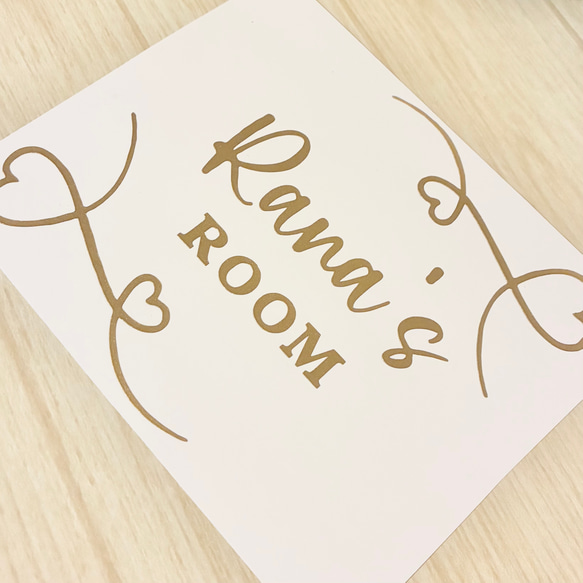 Rana's
ROOM